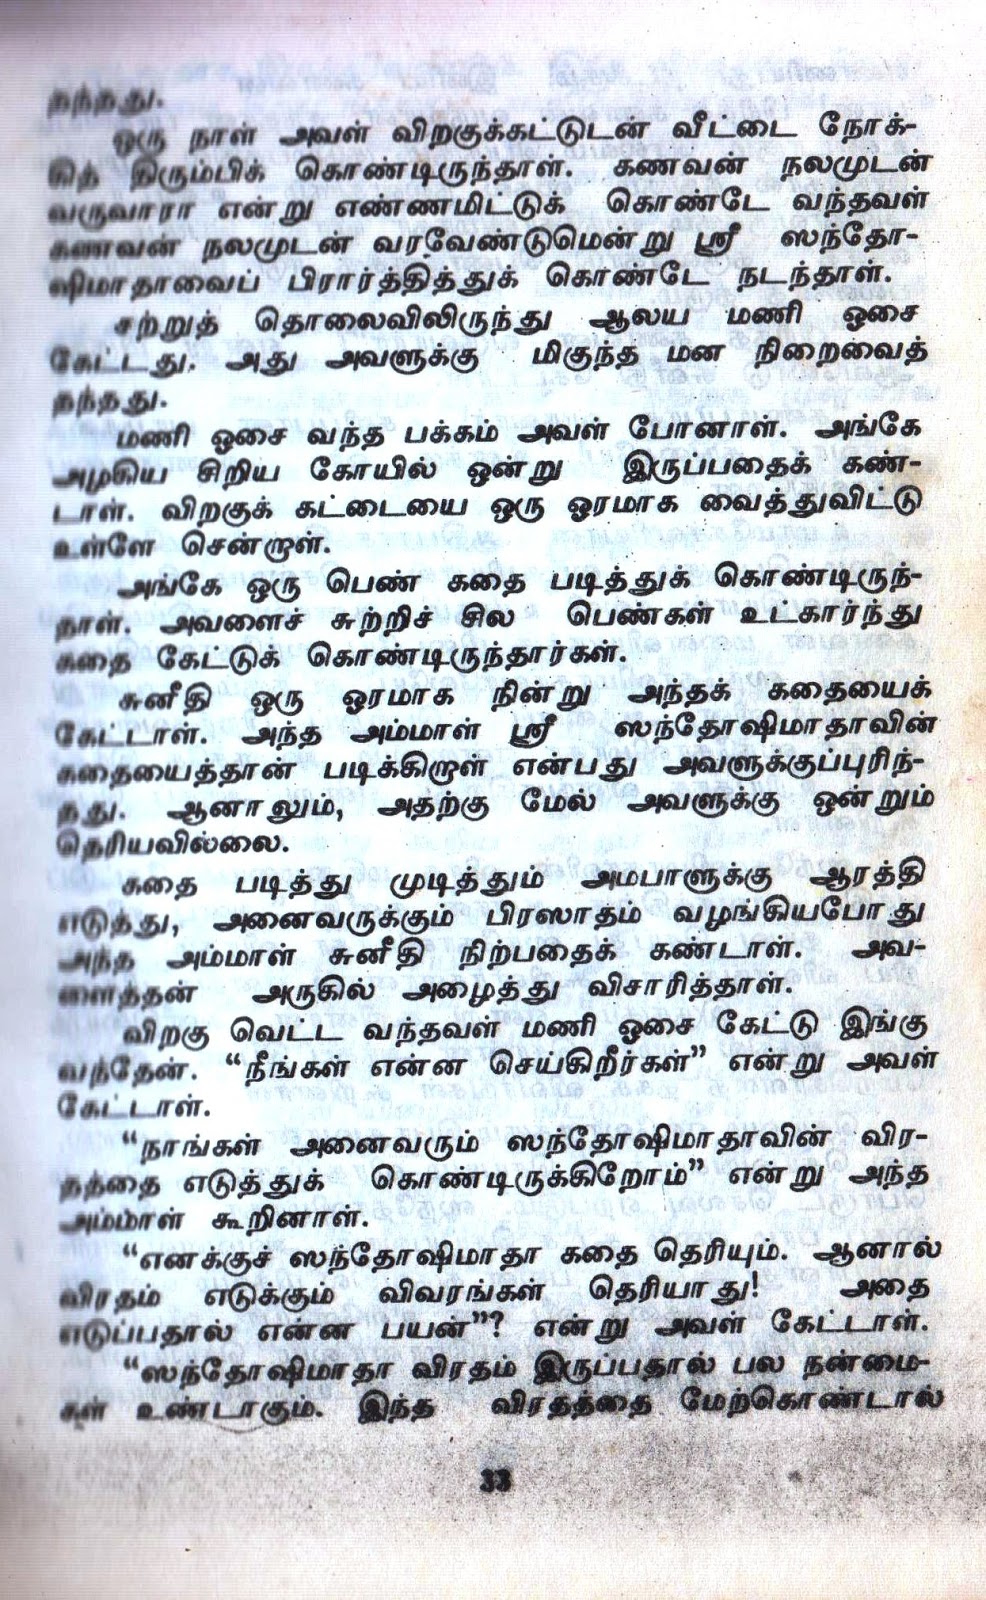 தந்தது.
ஒரு நாள் அவள் விறகுக்கட்டுடன் வீட்டை நோக்-
கித் திரும்பிக் கொண்டிருந்தாள். கணவன் நலமுடன்
வருவாரா என்று எண்ணமிட்டுக் கொண்டே வந்தவள்
கணவன் நலமுடன் வரவேண்டுமென்று ஸ்ரீ ஸந்தோ-
ஷிமாதாவைப் பிரார்த்தித்துக் கொண்டே நடந்தாள்.
சற்றுத் தொலைவிலிருந்து ஆலய மணி ஓசை
கேட்டது. அது அவளுக்கு மிகுந்த மன நிறைவைத்
தந்தது.
மணி ஓசை வந்த பக்கம் அவள் போனாள். அங்கே
அழகிய சிறிய கோயில் ஒன்று இருப்பதைக் கண்-
டாள். விறகுக் கட்டையை ஒரு ஓரமாக வைத்துவிட்டு
உள்ளே சென்றாள்.
அங்கே ஒரு பெண் கதை படித்துக் கொண்டிருந்-
தாள். அவளைச் சுற்றிச் சில பெண்கள் உட்கார்ந்து
கதை கேட்டுக் கொண்டிருந்தார்கள்.
சுனீதி ஒரு ஓரமாக நின்று அந்தக் கதையைக்
கேட்டாள். அந்த அம்மாள் ஸ்ரீ ஸந்தோஷிமாதாவின்
கதையைத்தான் படிக்கிறாள் என்பது அவளுக்குப்புரிந்-
தது. ஆனாலும், அதற்கு மேல் அவளுக்கு ஒன்றும்
தெரியவில்லை.
கதை படித்து முடித்தும் அமபாளுக்கு ஆரத்தி
எடுத்து, அனைவருக்கும் பிரஸாதம் வழங்கியபோது
அந்த அம்மாள் சுனீதி நிற்பதைக் கண்டாள். அவ-
ளைத்தன் அருகில் அழைத்து விசாரித்தாள்.
விறகு வெட்ட வந்தவள் மணி ஓசை கேட்டு இங்கு
வந்தேன். “நீங்கள் என்ன செய்கிறீர்கள்” என்று அவள்
கேட்டாள்.
“நாங்கள் அனைவரும் ஸந்தோஷிமாதாவின் விர-
தத்தை எடுத்துக் கொண்டிருக்கிறோம்” என்று அந்த
அம்மாள் கூறினாள்.
“எனக்குச் ஸந்தோஷிமாதா கதை தெரியும். ஆனால்
விரதம் எடுக்கும் விவரங்கள் தெரியாது! அதை
எடுப்பதால் என்ன பயன்”? என்று அவள் கேட்டாள்.
“ஸந்தோஷிமாதா விரதம் இருப்பதால் பல நன்மை-
கள் உண்டாகும். இந்த விரதத்தை மேற்கொண்டால்
33